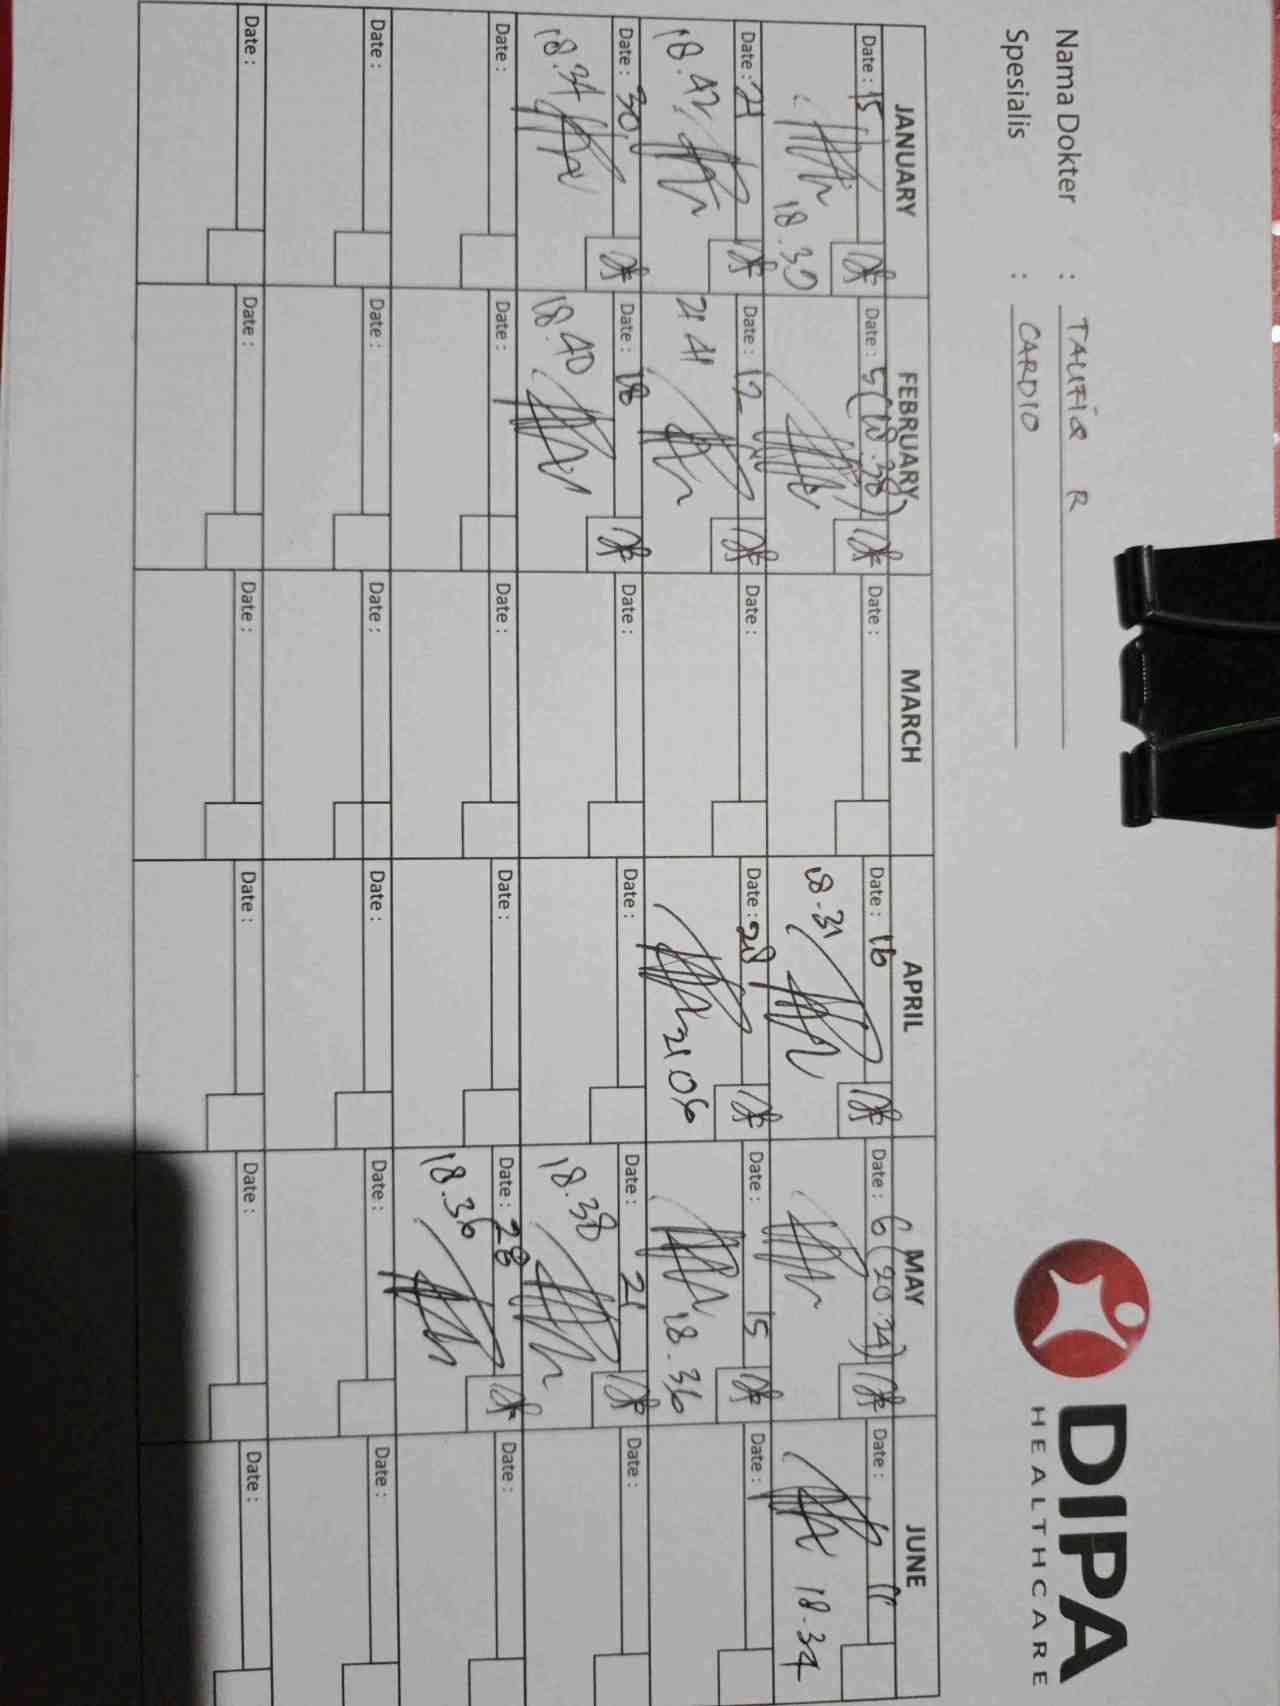 DIPA
HEALTHCARE
Nama Dokter : TAUFIQ R
Spesialis : CARDIO
JANUARY FEBRUARY MARCH APRIL MAY JUNE
Date : 15 Date : 5 (18.38) Date : Date : 16 Date : 6 (20.24) Date : 11
18.39 18.31 18.34
Date : 21 Date : 12 Date : Date : 28 Date : 15 Date :
18.42 21 41 21 06 18.36
Date : 30 Date : 18 Date : Date : Date : 21 Date :
18.34 18.40 18.38
Date : Date : Date : Date : Date : 28 Date :
18.36
Date : Date : Date : Date : Date : Date :
Date : Date : Date : Date : Date : Date :